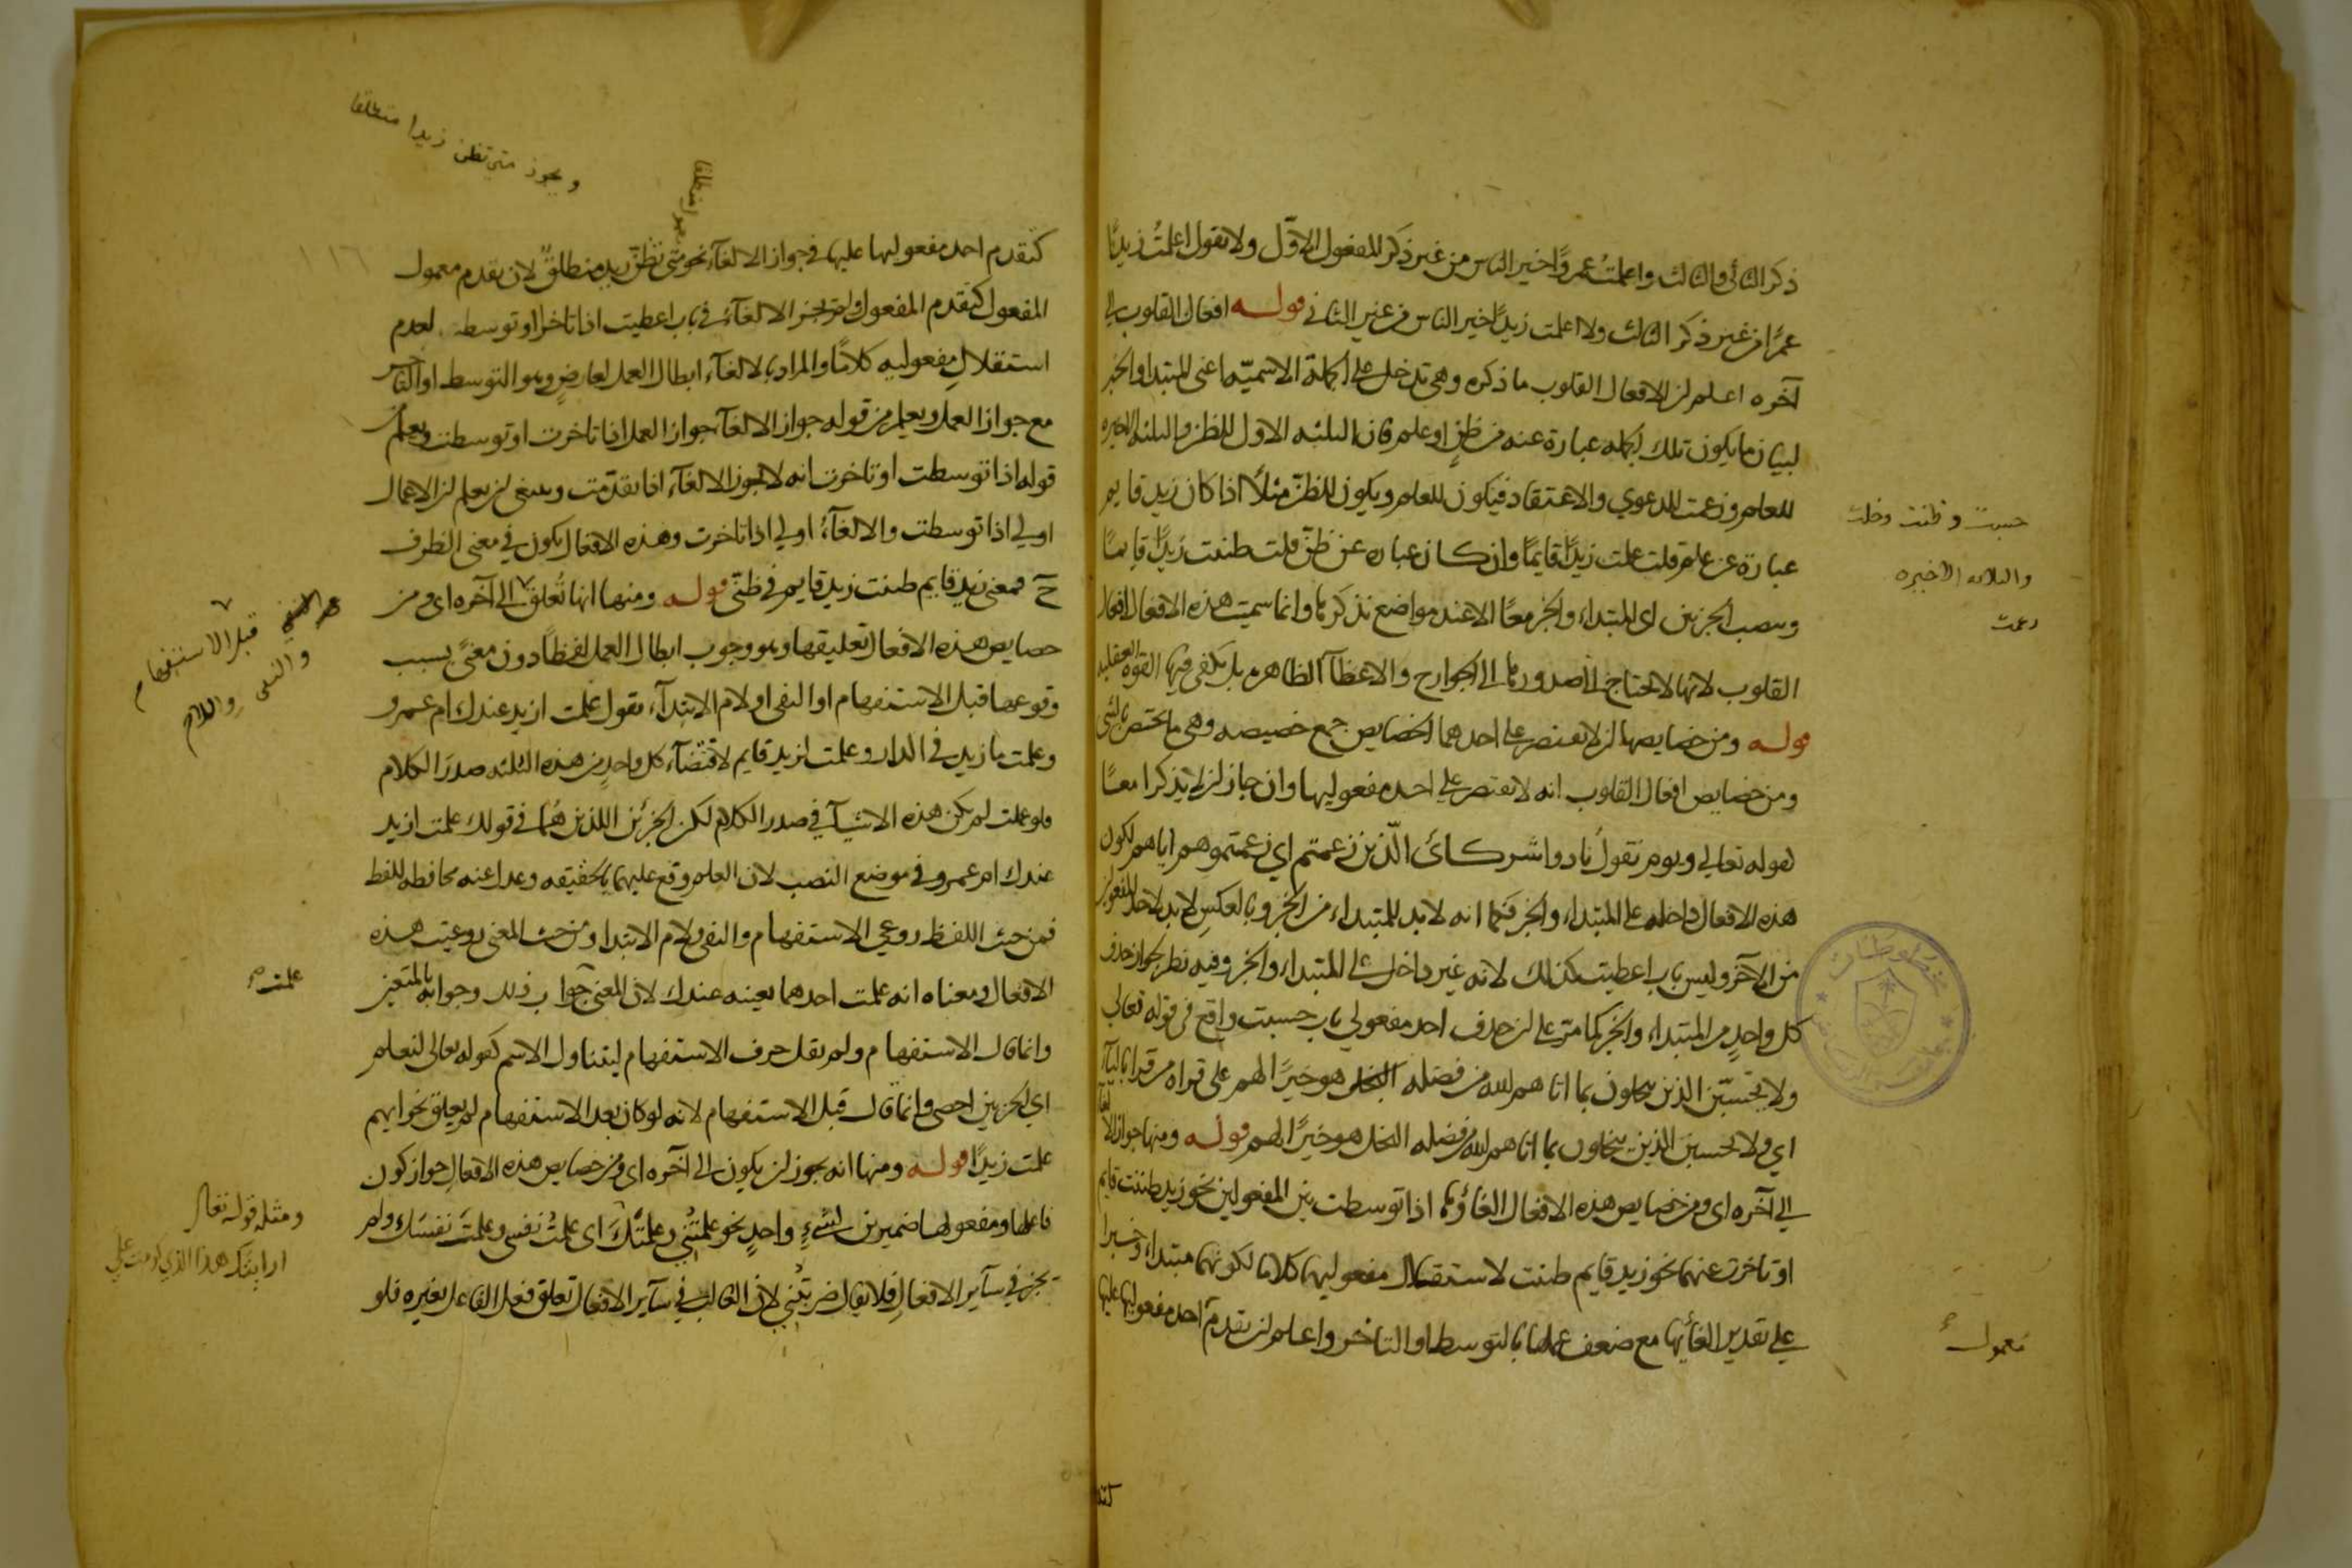 ذكر الثاني والثالث واعلمتُ عمروًا خير الناس من غير ذكر المفعول الاوّل ولا تقول اعلمتُ زيدًا
عمرًا من غير ذكر الثالث ولا اعلمت زيدًا خير الناس من غير الثاني قوله افعال القلوب الى
آخره اعلم ان الافعال القلوب ما ذكره وهي تدخل على الجملة الاسميّة اعني المبتدا والخبر
لبيان ما يكون تلك الجملة عبارة عنه من ظنٍ او علم فان الثلثه الاول للظن والثلثه الاخيره
للعلم وزعمت للدعوي والاعتقاد فيكون للعلم ويكون للظنّ مثلًا اذا كان زيد قايم
عبارة عن علم قلت علمت زيدًا قايمًا وان كان عباره عن ظنّ قلت ظننت زيدًا قايمًا
وينصب الجزئين اي المبتداء والخبر معًا الا عند مواضع نذكرها وانما سميت هذه الافعال افعال
القلوب لانها لا تحتاج في صدورها الى الجوارح والاعضآ الظاهره بل يكفي فيها القوه العقليه
قوله ومن خصايصها ان لا يقتصر على احدهما الخصايص جمع خصيصه وهي ما يختص بالشي
ومن خصايص افعال القلوب انه لا يقتصر على احد مفعوليها وان جاز ان لا يذكرا معًا
كقوله تعالي ويوم نقول نادوا شركائ الّذين زعمتم اي زعمتموهم اياهم لكون
هذه الافعال داخله على المبتداء والخبر فكما انه لا بد للمبتداء من الخبر وبالعكس لا بد لاحد المفعولين
من الآخر وليس باب اعطيت كذلك لانه غير داخل على المبتداء والخبر وفيه نظر لجواز حذف
كل واحدٍ من المبتداء والخبر كما مرّ على ان حذف احد مفعولي باب حسبت واقع في قوله تعالي
ولا يحسبّن الذين يبخلون بما اتاهم الله من فضله هو خيرًا لهم على قراه من قرا بالياء
اي ولا يحسبن الذين يبخلون بما اتاهم الله من فضله البخل هو خيرًا لهم قوله ومنها جواز الالغا
الى آخره اي ومن خصايص هذه الافعال الغاؤها اذا توسطت بين المفعولين نحو زيد ظننت قايم
او تاخرت عنهما نحو زيد قايم ظننت لاستقلال مفعوليها كلاما لكونهما مبتداء وخبرا
على تقدير الغائها مع ضعف عملها بالتوسط او التاخر واعلم ان تقدم احد مفعوليها عليها
حسبت وظننت وخلت
والثلاثه الاخيره
زعمت
معمول
كتقدم احد مفعوليها عليها في جواز الالغآء نحو متى تظنّ زيد منطلقٌ لان تقدم معمول
المفعول كتقدم المفعول وانما لم يجز الالغآء في باب اعطيت اذا تاخر او توسط لعدم
استقلالِ مفعوليه كلامًا والمراد بالالغآء ابطال العمل لعارضٍ وهو التوسط او التاخر
مع جواز العمل ويعلم من قوله جواز الالغآء جواز العمل اذا تاخرت او توسطت ويعلم من
قوله اذا توسطت او تاخرت انه لا يجوز الالغآء اذا تقدّمت وينبغي ان يعلم ان الاعمال
اولي اذا توسطت والالغآءُ اولي اذا تاخرت وهذه الافعال يكون في معني الظرف
ح فمعني زيد قايم ظننت زيد قايم في ظنّي قوله ومنها انها تُعلق الى آخره اي ومن
خصايص هذه الافعال تعليقها وهو وجوب ابطال العمل لفظًا دون معنيً بسبب
وقوعها قبل الاستفهام او النفي او لام الابتدآء تقول علمت ازيد عندك ام عمرو
وعلمت ما زيد في الدار وعلمت لزيد قايم لاقتضآء كل واحدٍ من هذه الثلثه صدرَ الكلام
فلو عملت لم يكن هذه الاشيآء في صدر الكلام لكن الجزئين اللذين هما في قولك علمت ازيد
عندك ام عمرو في موضع النصب لان العلم وقع عليهما بالحقيقه وعدل عنه محافظه للفظ
فمن حيث اللفظ روعي الاستفهام والنفي ولام الابتدا ومن حيث المعني روعيت هذه
الافعال ومعناه انه علمت احدهما بعينه عندك لان المعني جواب ذلك وجوابه بالتعيين
وانما قال الاستفهام ولم يقل حرف الاستفهام ليتناول الاسم كقوله تعالى لنعلم
اي الحزبين احصى وانما قال قبل الاستفهام لانه لو كان بعد الاستفهام لم يعلق نحو ايهم
علمت زيدًا قوله ومنها انه يجوز ان يكون الى آخره اي ومن خصايص هذه الافعال جواز كون
فاعلها ومفعولها ضميرين لشيءٍ واحدٍ نحو علمتُني وعلمتَكَ اي علمتُ نفسي وعلمتَ نفسَكَ ولم
يجز في سآير الافعالِ فلا يقال ضربتُني لان الغالب في سآير الافعال تعلق فعل الفاعل بغيره فلو
ويجوز متى تظن زيدا منطلقا
قبل الاستفهام
والنفي واللام
علمت
ومثله قوله تعالى
ارايتك هذا الذي كرمت علي
١١٦